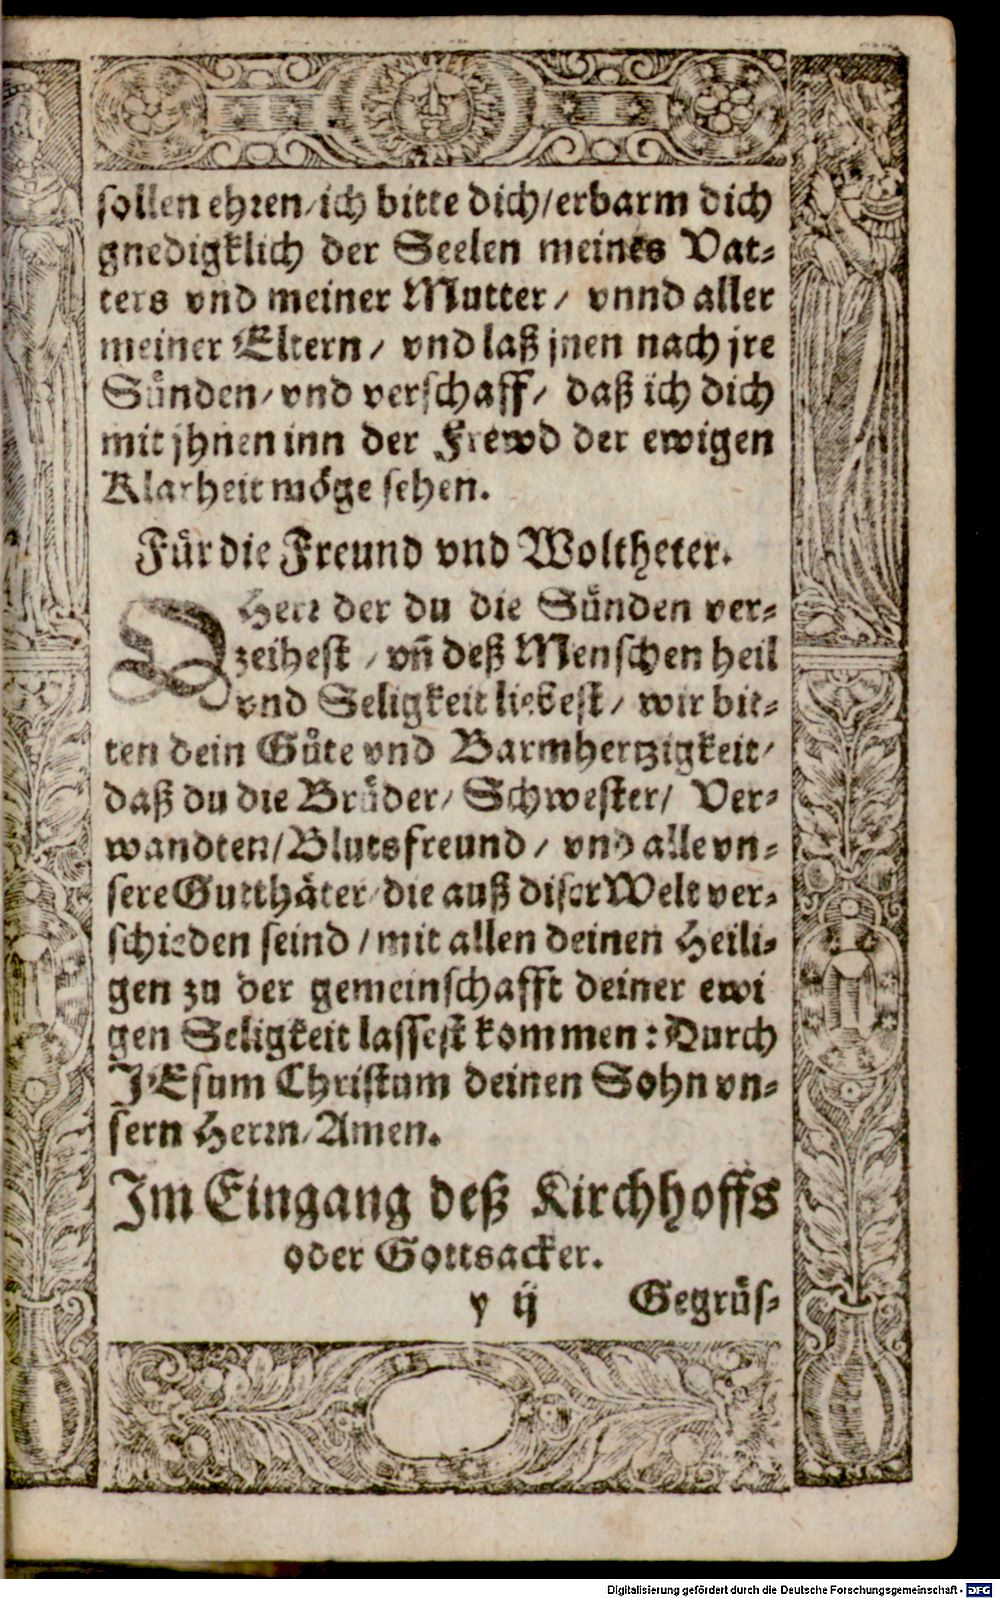 sollen ehren/ich bitte dich/erbarm dich
gnedigklich der Seelen meines Vat-
ters vnd meiner Mutter/ vnnd aller
meiner Eltern/ vnd laß jnen nach jre
Sünden/ vnd verschaff/ daß ich dich
mit jhnen inn der Frewd der ewigen
Klarheit möge sehen.
Für die Freund vnd Woltheter.
O Herr der du die Sünden ver-
zeihest / vñ deß Menschen heil
vnd Seligkeit liebest/ wir bit-
ten dein Güte vnd Barmhertzigkeit/
daß du die Brüder/ Schwester/ Ver-
wandten/Blutsfreund/ vnd alle vn-
sere Gutthäter/die auß diser Welt ver-
schieden seind/mit allen deinen Heili-
gen zu der gemeinschafft deiner ewi
gen Seligkeit lassest kommen: Durch
JEsum Christum deinen Sohn vn-
sern Herrn/Amen.
Im Eingang deß Kirchhoffs
oder Gottsacker.
y ij Gegrüs-
Digitalisierung gefördert durch die Deutsche Forschungsgemeinschaft - DFG